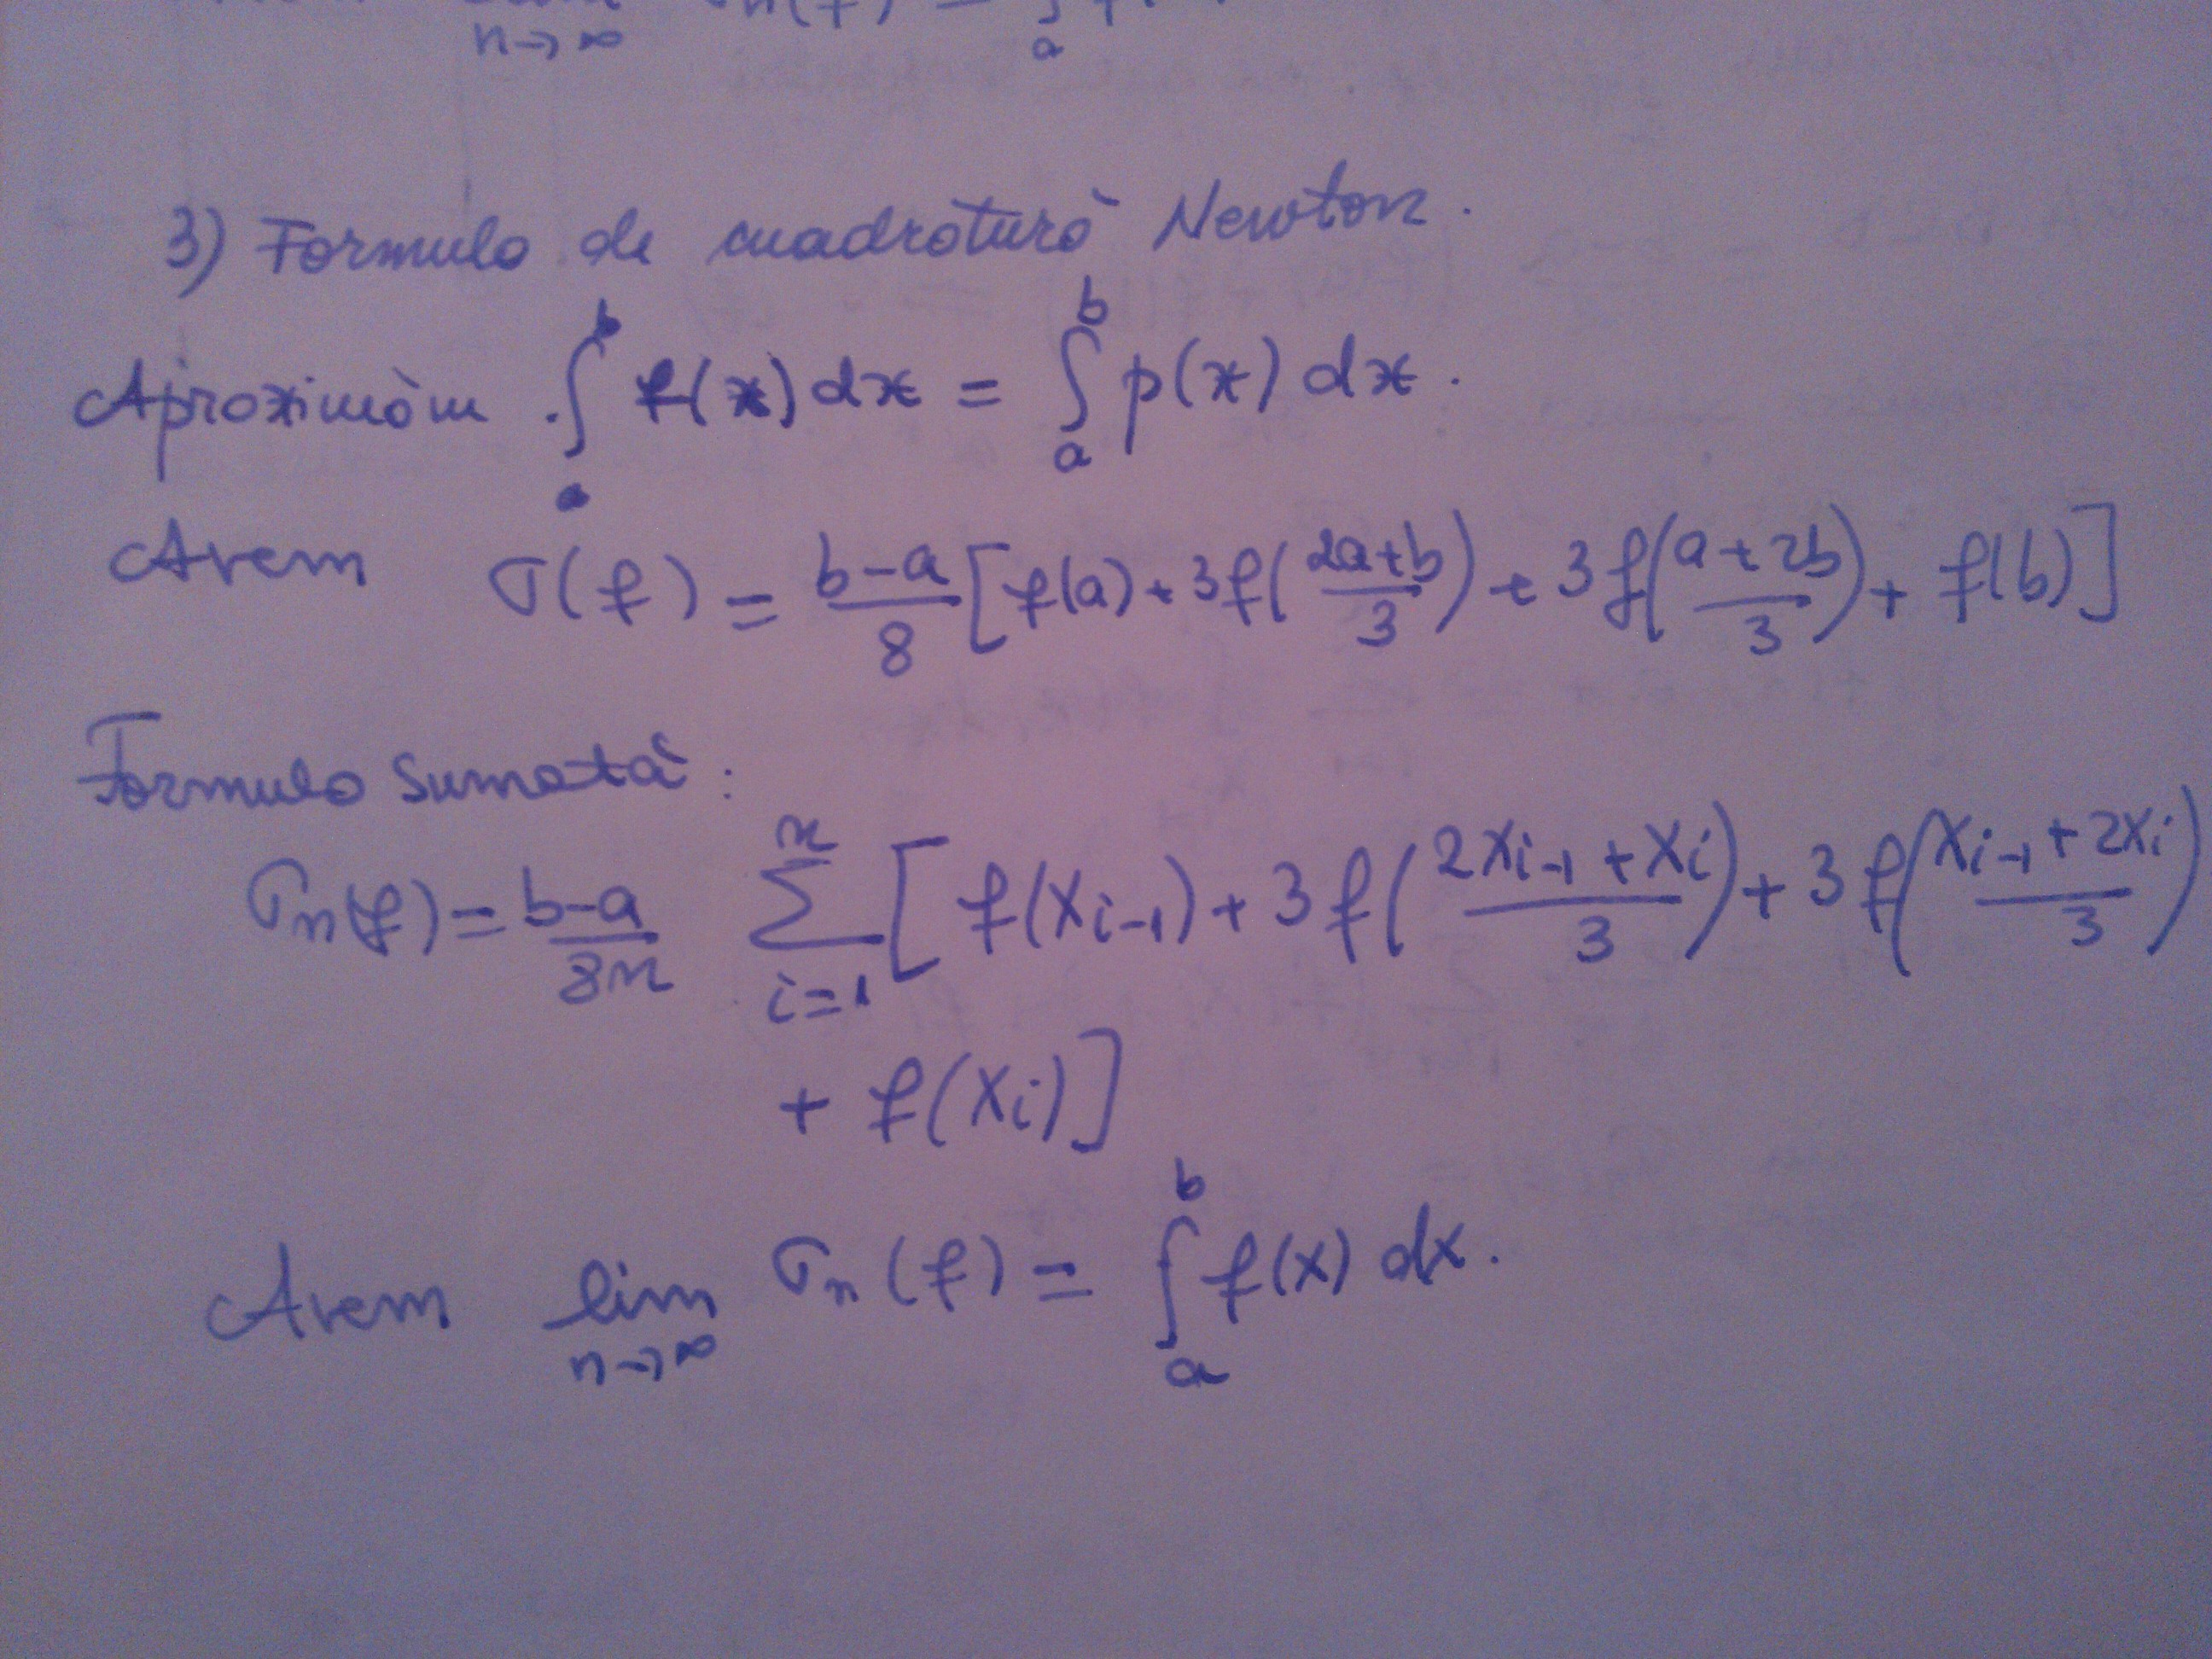 n→∞ a
3) Formula de cuadratură Newton.
Aproximăm ∫_a^b f(x) dx = ∫_a^b p(x) dx.
Avem σ(f) = (b-a)/8 [f(a) + 3f((2a+b)/3) + 3f((a+2b)/3) + f(b)]
Formula sumată:
σn(f) = (b-a)/(8n) Σ_{i=1}^n [f(x_{i-1}) + 3f((2x_{i-1}+x_i)/3) + 3f((x_{i-1}+2x_i)/3)
+ f(x_i)]
Avem lim_{n→∞} σn(f) = ∫_a^b f(x) dx.